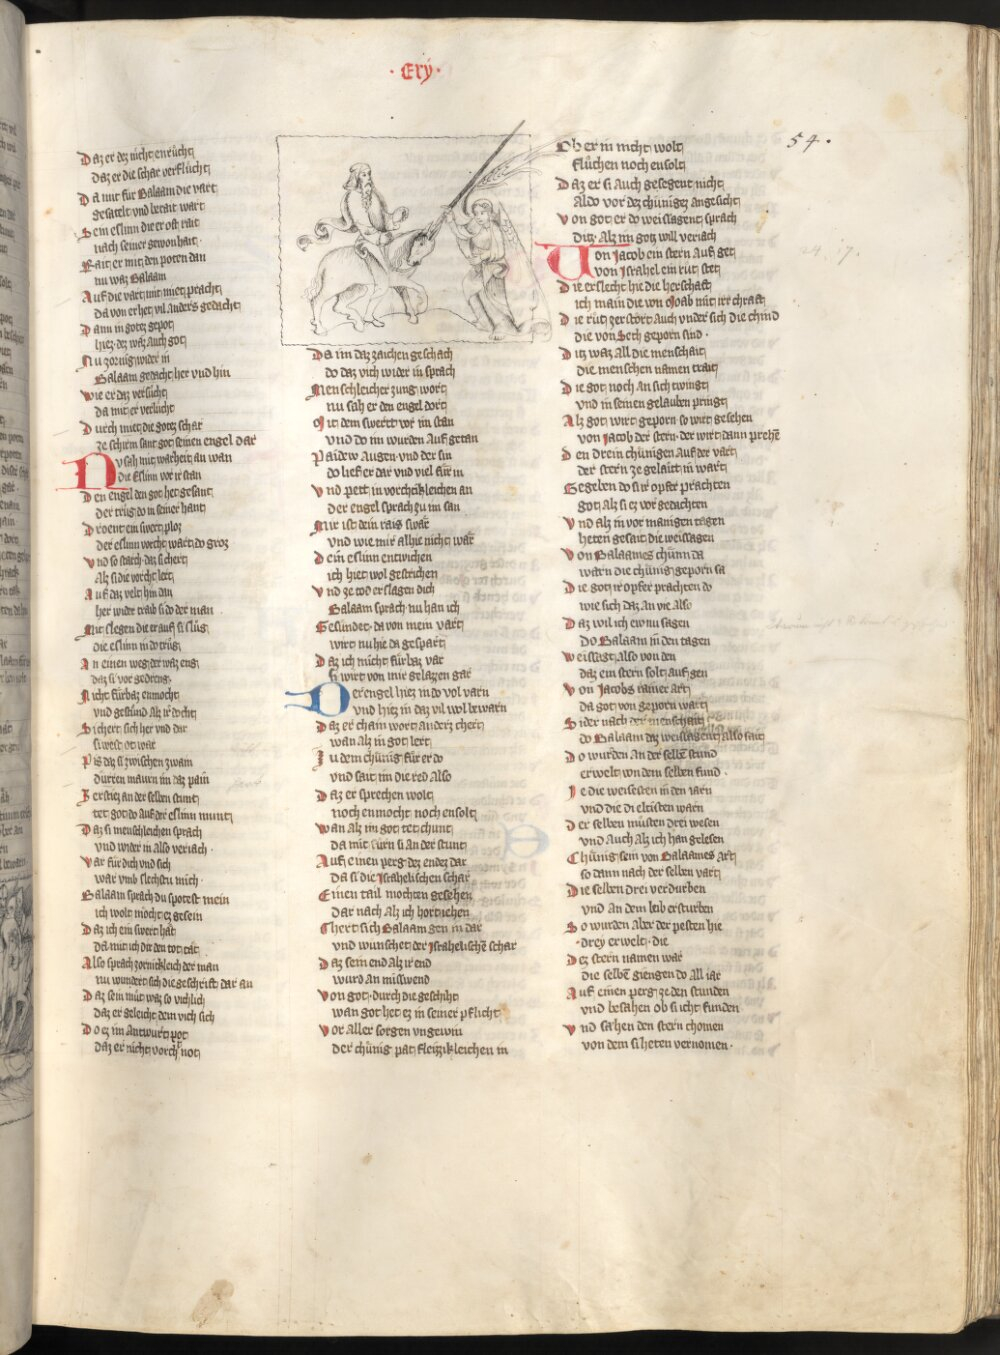 · Erẏ ·
54 ·
Daz er dez nicht enrucht
daz er die schar verflucht
Da mit fur Balaam die vart
gesatelt und berait wart
Sein eslinn die er oft rait
nach seiner gewonhait
Fait er mit den poten dan
nu waz Balaam
Auf die vart mit miet pracht
da von er het vil anders gedacht
Dann in gotez gepot
hiez dez waz auch got
Nu zornig wider in
Balaam gedacht her und hin
wie er daz versucht
da mit er verlucht
Durch miet die gotz schar
ze schirm sant got seinen engel dar
Nu sah mit warheit an wan
die Eslinn vor ir stan
Den engel den got het gesant
der trug do in seiner hant
Droent ein swert ploz
der eslinn vorcht wart do groz
Vnd so starch daz si chert
Alz si die vorcht lert
Auf daz velt hin dan
her wider traib si do der man
Mit slegen die er auf si slug
die eslinn in do trug
An einen weg der waz eng
daz si vor gedreng
Nicht furbaz enmocht
vnd gestund alz ir docht
Sichert sich her vnd dar
si west ot war
Piz daz si zwischen zwain
durren maurn im daz pain
Zerstiez an der selben stunt
tet got do auf der eslinn munt
Daz si menschleichen sprach
vnd wider in also veriach ·
War fur dich vnd sich
war vmb slechstu mich ·
Balaam sprach du spottst mein
ich wolt mocht ez gesein
Daz ich ein swert hat
da mit ich dir den tot tat
Also sprach zornichleich der man
nu wundert sich die geschrift dar an
Daz sein mut waz so vichlich
daz er geleicht dem vich sich
Do ez im antwurt pot
daz er nicht vorcht not
Da im daz zaichen geschach
do daz vich wider in sprach
Menschleicher zung wort
nu sah er den engel dort
Mit dem swert vor im stan
vnd do im wurden auf getan
Paidew augen vnd der sin
do lief er dar vnd viel fur in
Vnd pett in vorchtikleichen an
der engel sprach zu im san
Mir ist dein rais swar
vnd wie mir alhie nicht war
Dein eslinn entwichen
ich hiet wol gestrichen
Vnd ze tod erslagen dich
Balaam sprach nu han ich
Gesundet · da von mein vart
wirt nu hie da gespart
Daz ich nicht furbaz var
si wirt von mir gelazen gar
Der engel hiez in do vol varn
vnd hiez in daz vil wol bewarn
Daz er chain wort anderz chert
wan alz in got lert
Zu dem chunig fur er do
vnd sait im die red also
Daz er sprechen wolt
noch enmocht noch ensolt
Wan alz im got tet chunt
da mit furn si an der stunt
Auf einen perg dez endez dar
da si die Israhelischen schar
Einen tail mochten gesehen
Dar nach alz ich hort iehen
Chert sich Balaam gen in dar
vnd wunschet der Israhelischē schar
Daz sein end alz ir end
wurd an missewend
Von got · durch die geschiht
wan got het ez in seiner pflicht
Vor aller sorgen vngewin
der chunig pat fleizzikleichen in
Ob er in nicht wolt
fluchen noch ensolt
Daz er si auch gesegent nicht
Aldo vor dez chunigez angesicht
Von got er do weissagent sprach
ditz · alz im gotz will veriach
Von Jacob ein stern auf get
von Israhel ein rut stet
Die erslecht hie die herschaft
ich main die von Moab mit irr chraft
Die rut zerstort auch vnder sich die chind
die von Seth geporn sind ·
Ditz waz all die menschait
die menschen namen trait
Die got noch an sich twingt
vnd in seinen gelauben pringt
Alz got wirt geporn so wirt gesehen
von Jacob der stern · der wirt dann prehē
Den drein chunigen auf der vart
der stern ze gelaitt in wart
Gegeben do si ir opfer prachten
got alz si ez vor gedachten
Vnd alz in vor manigen tagen
heten gesait die weissagen
Von Balaames chunn da
warn die chunig geporn sa
Die got ir opfer prachten do
wie sich daz an vie also
Daz wil ich ew nu sagen
Do Balaam in den tagen
Weissagt also von den
daz ein stern solt auf gen
Von Jacobs rainer art
da got von geporn wart
Sider nach der menschait
do Balaam daz weissagent also sait
Do wurden an der selbē stund
erwelt von dem selben fund ·
Je die weisesten in den iarn
vnd die di eltisten warn
Der selben musten drei wesen
vnd auch alz ich han gelesen
Chunig sein von Balaames art
so dann nach der selben vart
Die selben drei verdurben
vnd an dem leib ersturben
So wurden aber der pesten hie
· drey erwelt · die
Dez stern namen war
die selbē giengen do all iar
Auf einen perg ze den stunden
vnd besahen ob si icht funden
Vnd sahen den stern chomen
von dem si heten vernomen ·